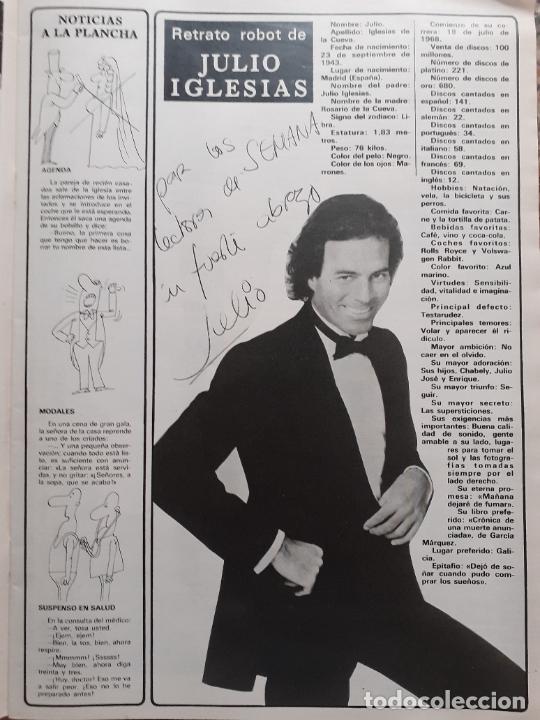 NOTICIAS
A LA PLANCHA
AGENDA
La pareja de recién casa-
dos sale de la iglesia entre
las aclamaciones de los invi-
tados y se introduce en el
coche que le está esperando.
Entonces él saca una agenda
de su bolsillo y dice:
—Bueno, la primera cosa
que tengo que hacer es bo-
rrar tu nombre de esta lista...
MODALES
En una cena de gran gala,
la señora de la casa reprende
a uno de los criados:
—... Y una pequeña obser-
vación; cuando todo está lis-
to, es suficiente con anun-
ciar: «La señora está servi-
da», y no gritar: «¡Señores, a
la sopa, que se acaba!»
SUSPENSO EN SALUD
En la consulta del médico:
—A ver, tosa usted.
—¡Ejem, ejem!
—Bien, la tos, bien, ahora
respire.
—¡Mmmmm! ¡Sssss!
—Muy bien, ahora diga
treinta y tres.
—¡Huy, doctor! Eso me va
a salir peor. ¡Eso no lo he
preparado antes!
Retrato robot de
JULIO
IGLESIAS
para los
lectores de SEMANA
un fuerte abrazo
Julio
Nombre: Julio.
Apellido: Iglesias de
la Cueva.
Fecha de nacimiento:
23 de septiembre de
1943.
Lugar de nacimiento:
Madrid (España).
Nombre del padre:
Julio Iglesias.
Nombre de la madre:
Rosario de la Cueva.
Signo del zodiaco: Li-
bra.
Estatura: 1,83 me-
tros.
Peso: 76 kilos.
Color del pelo: Negro.
Color de los ojos: Ma-
rrones.
Comienzo de su ca-
rrera: 18 de julio de
1968.
Venta de discos: 100
millones.
Número de discos de
platino: 221.
Número de discos de
oro: 680.
Discos cantados en
español: 141.
Discos cantados en
alemán: 22.
Discos cantados en
portugués: 34.
Discos cantados en
italiano: 58.
Discos cantados en
francés: 69.
Discos cantados en
inglés: 12.
Hobbies: Natación,
vela, la bicicleta y sus
perros.
Comida favorita: Car-
ne y la tortilla de patata.
Bebidas favoritas:
Café, vino y coca-cola.
Coches favoritos:
Rolls Royce y Volswa-
gen Rabbit.
Color favorito: Azul
marino.
Virtudes: Sensibili-
dad, vitalidad e imagina-
ción.
Principal defecto:
Testarudez.
Principales temores:
Volar y aparecer el ri-
dículo.
Mayor ambición: No
caer en el olvido.
Su mayor adoración:
Sus hijos, Chabely, Julio
José y Enrique.
Su mayor triunfo: Se-
guir.
Su mayor secreto:
Las supersticiones.
Sus exigencias más
importantes: Buena cali-
dad de sonido, gente
amable a su lado, luga-
res para tomar el
sol y las fotogra-
fías tomadas
siempre por el
lado derecho.
Su eterna pro-
mesa: «Mañana
dejaré de fumar».
Su libro prefe-
rido: «Crónica de
una muerte anun-
ciada», de García
Márquez.
Lugar preferido: Gali-
cia.
Epitafio: «Dejó de so-
ñar cuando pudo com-
prar los sueños».
todocoleccion.net